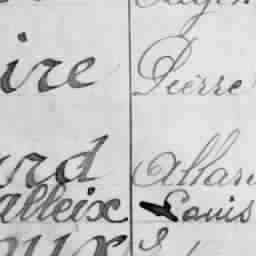 ire Pierre
ard Allar
alleix Louis
oux